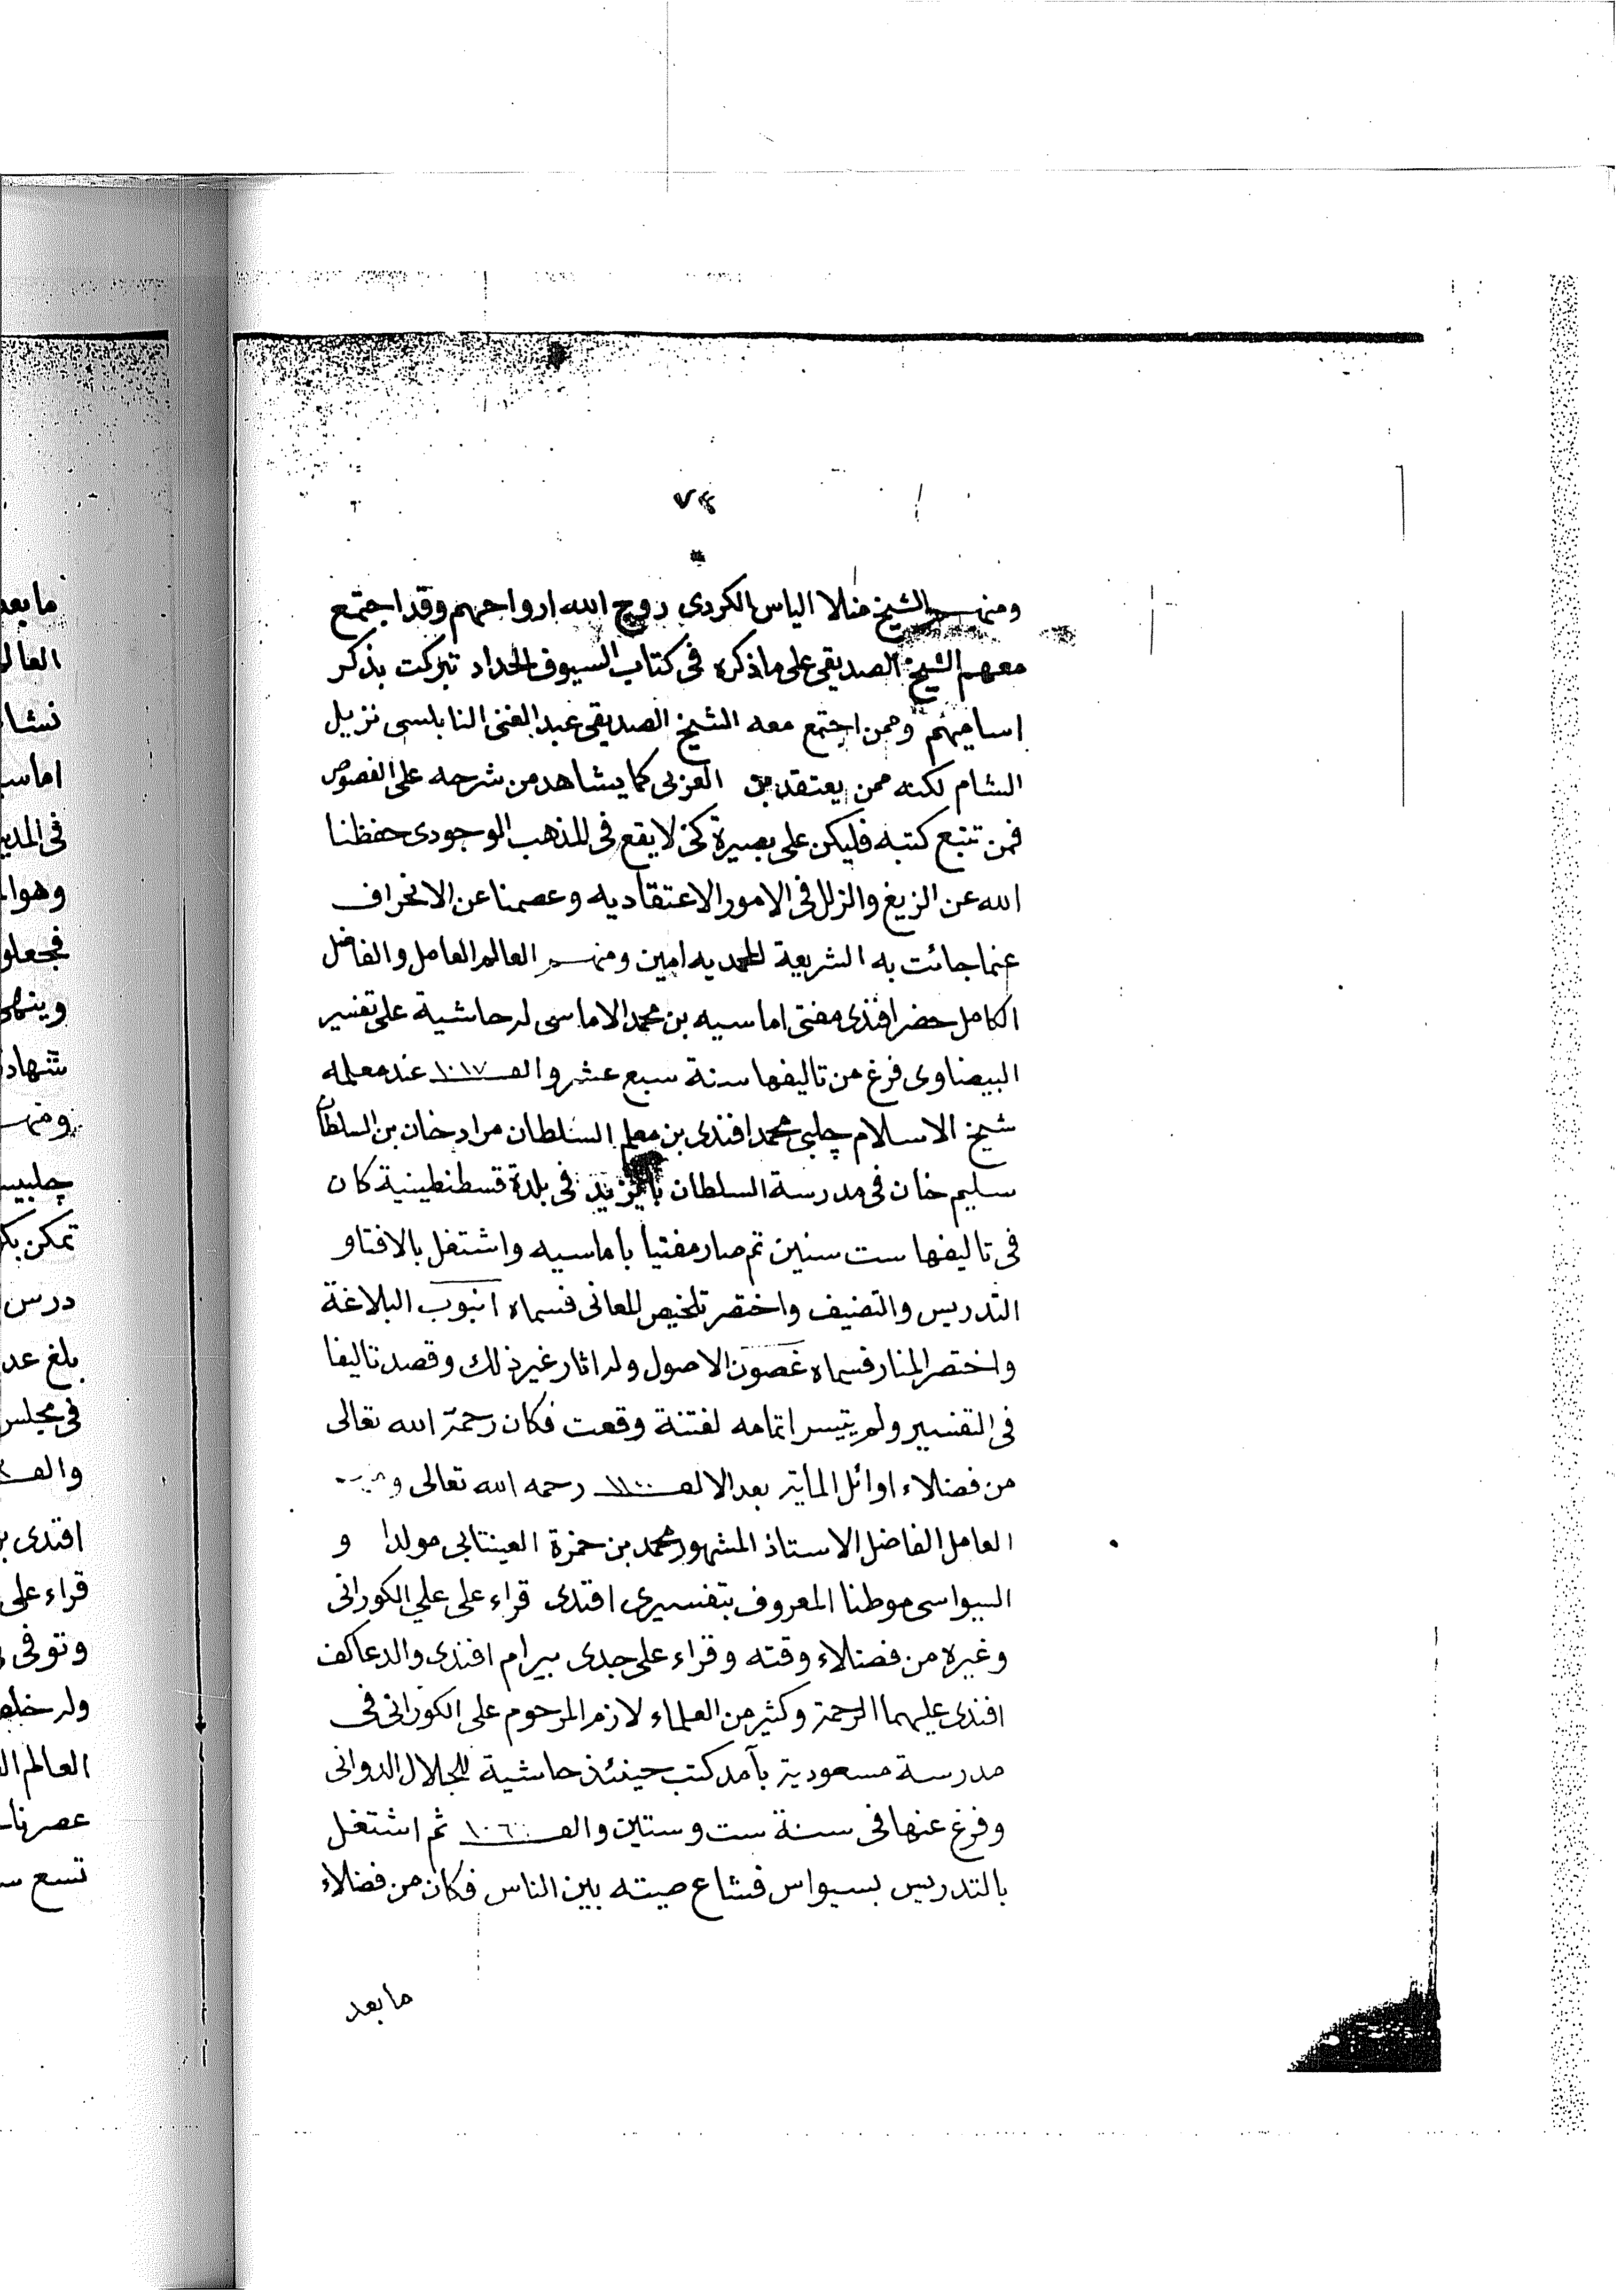 ٧٤
ومنهم الشيخ منلا الياس الكردى روح الله ارواحهم وقد اجتمع
معهم الشيخ الصديقى على ما ذكره فى كتاب السيوف الحداد تبركت بذكر
اساميهم وممن اجتمع معه الشيخ الصديقى عبد الغنى النابلسى نزيل
الشام لكنه ممن يعتقد بن العربى كما يشاهد من شرحه على الفصوص
فمن تتبع كتبه فليكن على بصيرة كى لا يقع فى المذهب الوجودى حفظنا
الله عن الزيغ والزلل فى الامور الاعتقاديه وعصمنا عن الانحراف
عنما جائت به الشريعة المحمديه امين ومنهم العالم العامل والفاضل
الكامل حضر افندى مفتى اماسيه بن محمد الاماسى له حاشية على تفسير
البيضاوى فرغ من تاليفها سنة سبع عشر والف ١٠١٧ عند معلمه
شيخ الاسلام چلبى محمد افندى بن معلم السلطان مراد خان بن السلطان
سليم خان فى مدرسة السلطان بايزيد فى بلدة قسطنطينية كان
فى تاليفها ست سنين ثم صار مفتيا باماسيه واشتغل بالافتاو
التدريس والتصنيف واختصر تلخيص المعانى فسماه انبوب البلاغة
واختصر المنار فسماه غصون الاصول وله اثار غير ذلك وقصد تاليفا
فى التفسير ولم يتيسر اتمامه لفتنة وقعت فكان رحمة الله تعالى
من فضلاء اوائل المأية بعد الالف ١١٠٠ رحمه الله تعالى
العامل الفاضل الاستاذ المشهور محمد بن حمزة العينتابى مولدا و
السيواسى موطنا المعروف بتفسيرى افندى قراء على علي الكورانى
وغيره من فضلاء وقته وقراء على جدى بيرام افندى والد عاكف
افندى عليهما الرحمة وكثير من العلماء لازم المرحوم على الكورانى فى
مدرسة مسعودية بآمد كتب حينئذ حاشية للجلال الدوانى
وفرغ عنها فى سنة ست وستين والف ثم اشتغل
بالتدريس بسيواس فشاع صيته بين الناس فكان من فضلاء
ما بعد